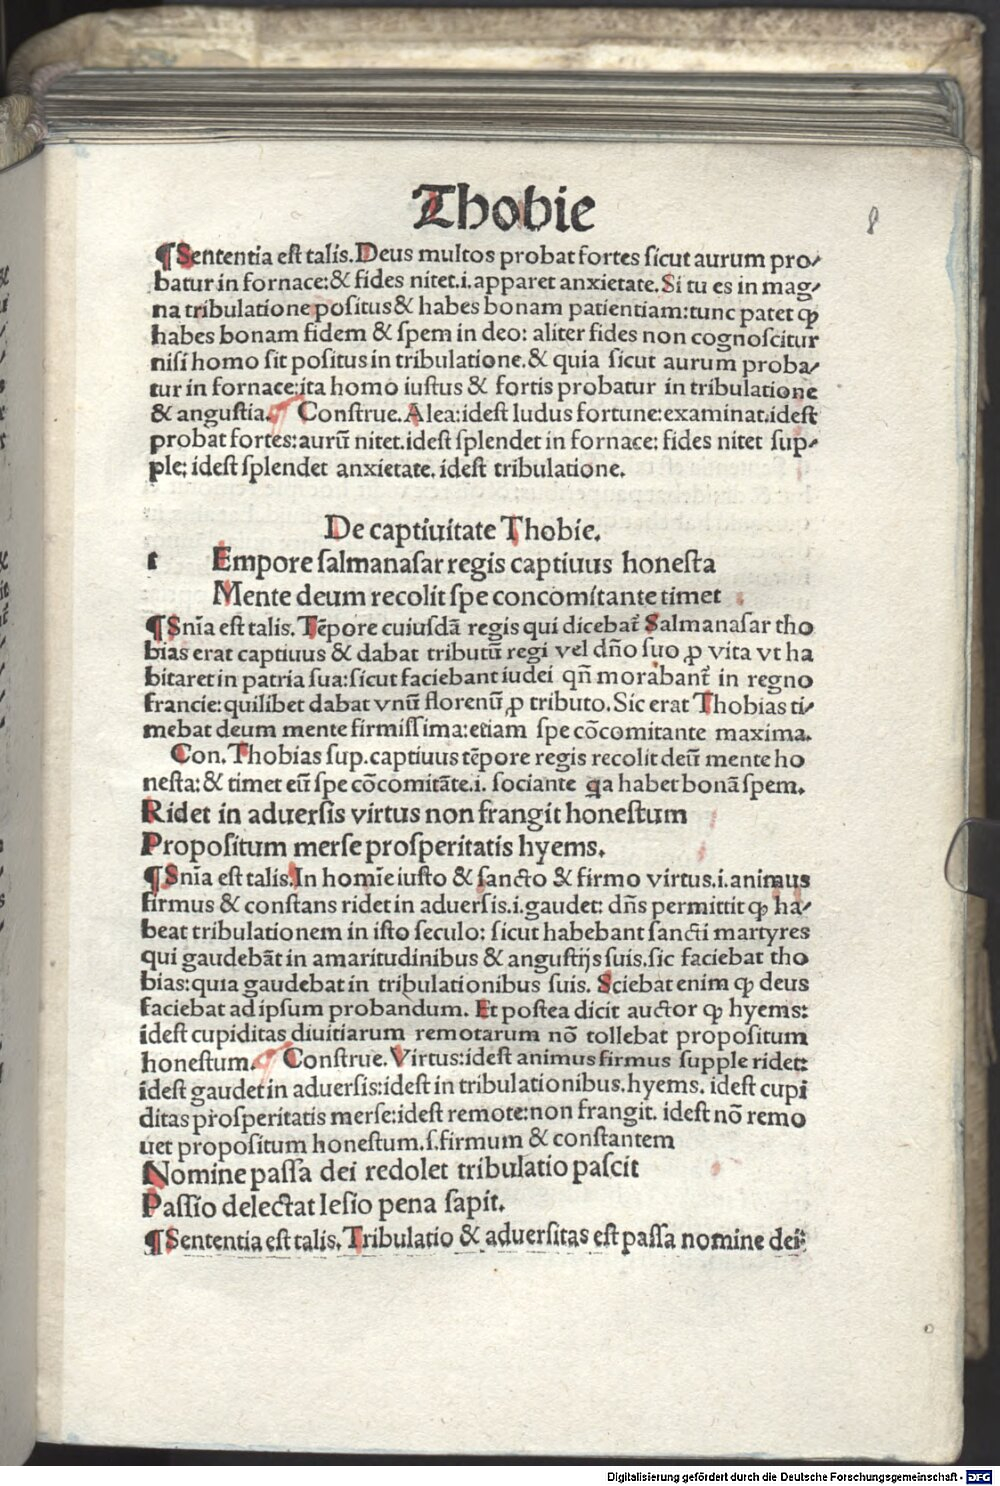 Thobie
8
¶Sententia est talis. Deus multos probat fortes sicut aurum pro⸗
batur in fornace: & fides nitet .i. apparet anxietate. Si tu es in mag⸗
na tribulatione positus & habes bonam patientiam: tunc patet ꝙ
habes bonam fidem & spem in deo: aliter fides non cognoscitur
nisi homo sit positus in tribulatione. & quia sicut aurum proba⸗
tur in fornace: ita homo iustus & fortis probatur in tribulatione
& angustia. ¶ Construe. Alea: idest ludus fortune: examinat. idest
probat fortes: aurū nitet. idest splendet in fornace: fides nitet sup⸗
ple: idest splendet anxietate. idest tribulatione.
De captiuitate Thobie.
t Empore salmanasar regis captiuus honesta
Mente deum recolit spe concomitante timet
¶Snīa est talis. Tēpore cuiusdā regis qui dicebat᷑ Salmanasar tho
bias erat captiuus & dabat tributū regi vel dño suo ꝓ vita vt ha
bitaret in patria sua: sicut faciebant iudei qñ morabant᷑ in regno
francie: quilibet dabat vnū florenū ꝓ tributo. Sic erat Thobias ti⸗
mebat deum mente firmissima: etiam spe cōcomitante maxima.
Con. Thobias sup. captiuus tēpore regis recolit deū mente ho
nesta: & timet eū spe cōcomitāte .i. sociante qa habet bonā spem.
Ridet in aduersis virtus non frangit honestum
Propositum merse prosperitatis hyems.
¶Snīa est talis. In homīe iusto & sancto & firmo virtus .i. animus
firmus & constans ridet in aduersis .i. gaudet: dñs permittit ꝙ ha⸗
beat tribulationem in isto seculo: sicut habebant sancti martyres
qui gaudebāt in amaritudinibus & angustijs suis. sic faciebat tho
bias: quia gaudebat in tribulationibus suis. Sciebat enim ꝙ deus
faciebat ad ipsum probandum. Et postea dicit auctor ꝙ hyems:
idest cupiditas diuitiarum remotarum nō tollebat propositum
honestum. ¶ Construe. Virtus: idest animus firmus supple ridet:
idest gaudet in aduersis: idest in tribulationibus. hyems. idest cupi
ditas prosperitatis merse: idest remote: non frangit. idest nō remo
uet propositum honestum. s. firmum & constantem
Nomine passa dei redolet tribulatio pascit
Passio delectat lesio pena sapit.
¶Sententia est talis. Tribulatio & aduersitas est passa nomine dei:
Digitalisierung gefördert durch die Deutsche Forschungsgemeinschaft - DFG